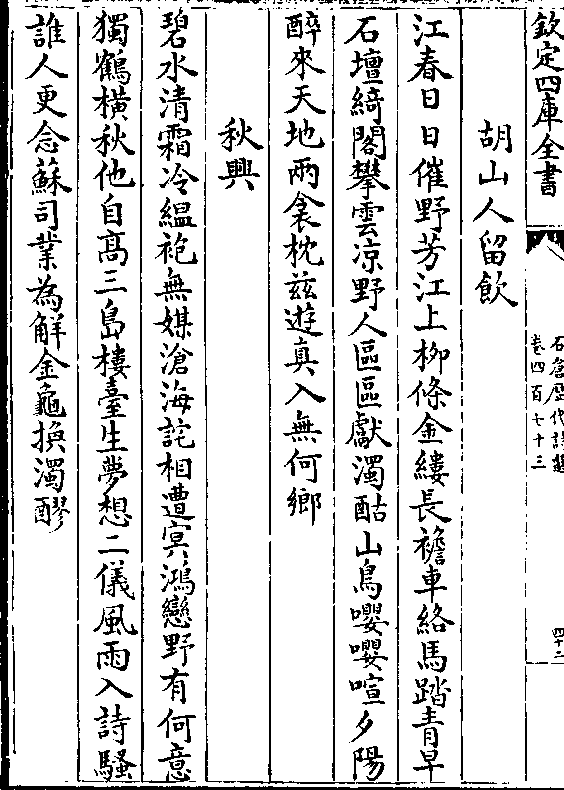 欽定四庫全書
石倉歴代詩選
卷四百七十三
四十二
胡山人留飲
江春日日催野芳江上栁條金縷長襜車絡馬踏青早
石壇綺閣攀雲凉野人區區獻濁酤山鳥嚶嚶喧夕陽
醉來天地兩衾枕兹遊真入無何鄉
秋興
碧水清霜冷緼袍無媒滄海詫相遭冥鴻戀野有何意
獨鶴橫秋他自髙三島樓臺生夢想二儀風雨入詩騷
誰人更念蘇司業為解金龜换濁醪